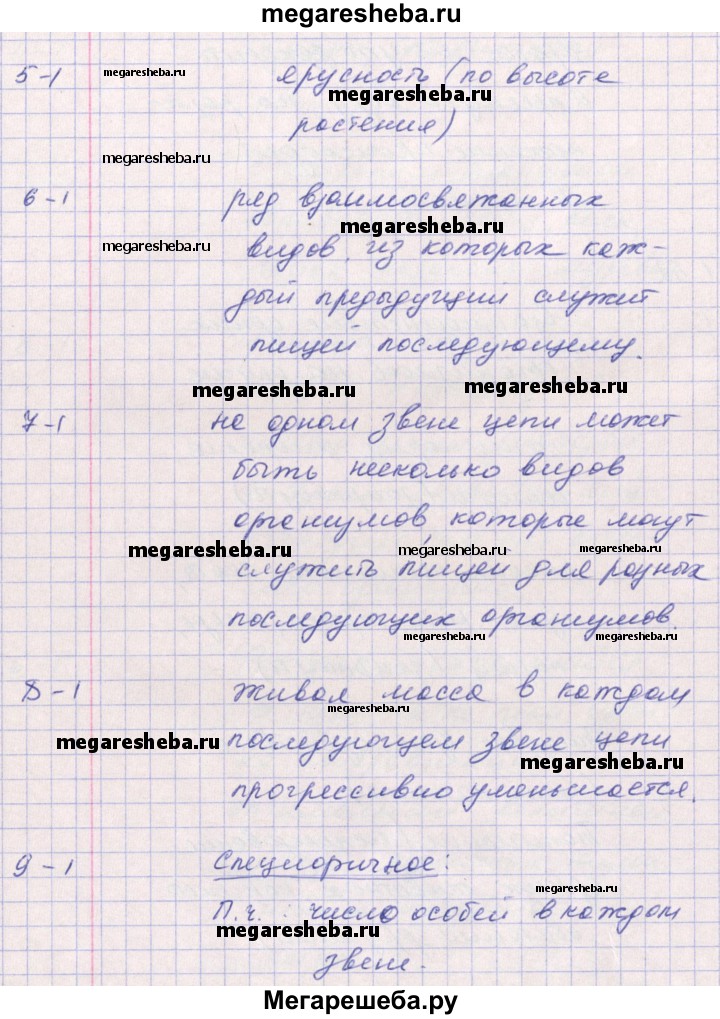 megaresheba.ru
5-1 megaresheba.ru ярусность (по высоте
megaresheba.ru
растения)
megaresheba.ru
6-1 ряд взаимосвяжанных
megaresheba.ru
megaresheba.ru видов, из которых каж-
дый предыдущий служит
пищей последующему.
megaresheba.ru megaresheba.ru
7-1 на одном звене цепи может
быть несколько видов
организмов, которые могут
megaresheba.ru megaresheba.ru megaresheba.ru
служить пищей для разных
последующих организмов.
megaresheba.ru megaresheba.ru
8-1 живая масса в каждом
megaresheba.ru
megaresheba.ru последующем звене цепи
megaresheba.ru
прогрессивно уменьшается.
9-1 :
megaresheba.ru
П.ч. : число особей в каждом
megaresheba.ru
звене.
Мегарешеба.ру